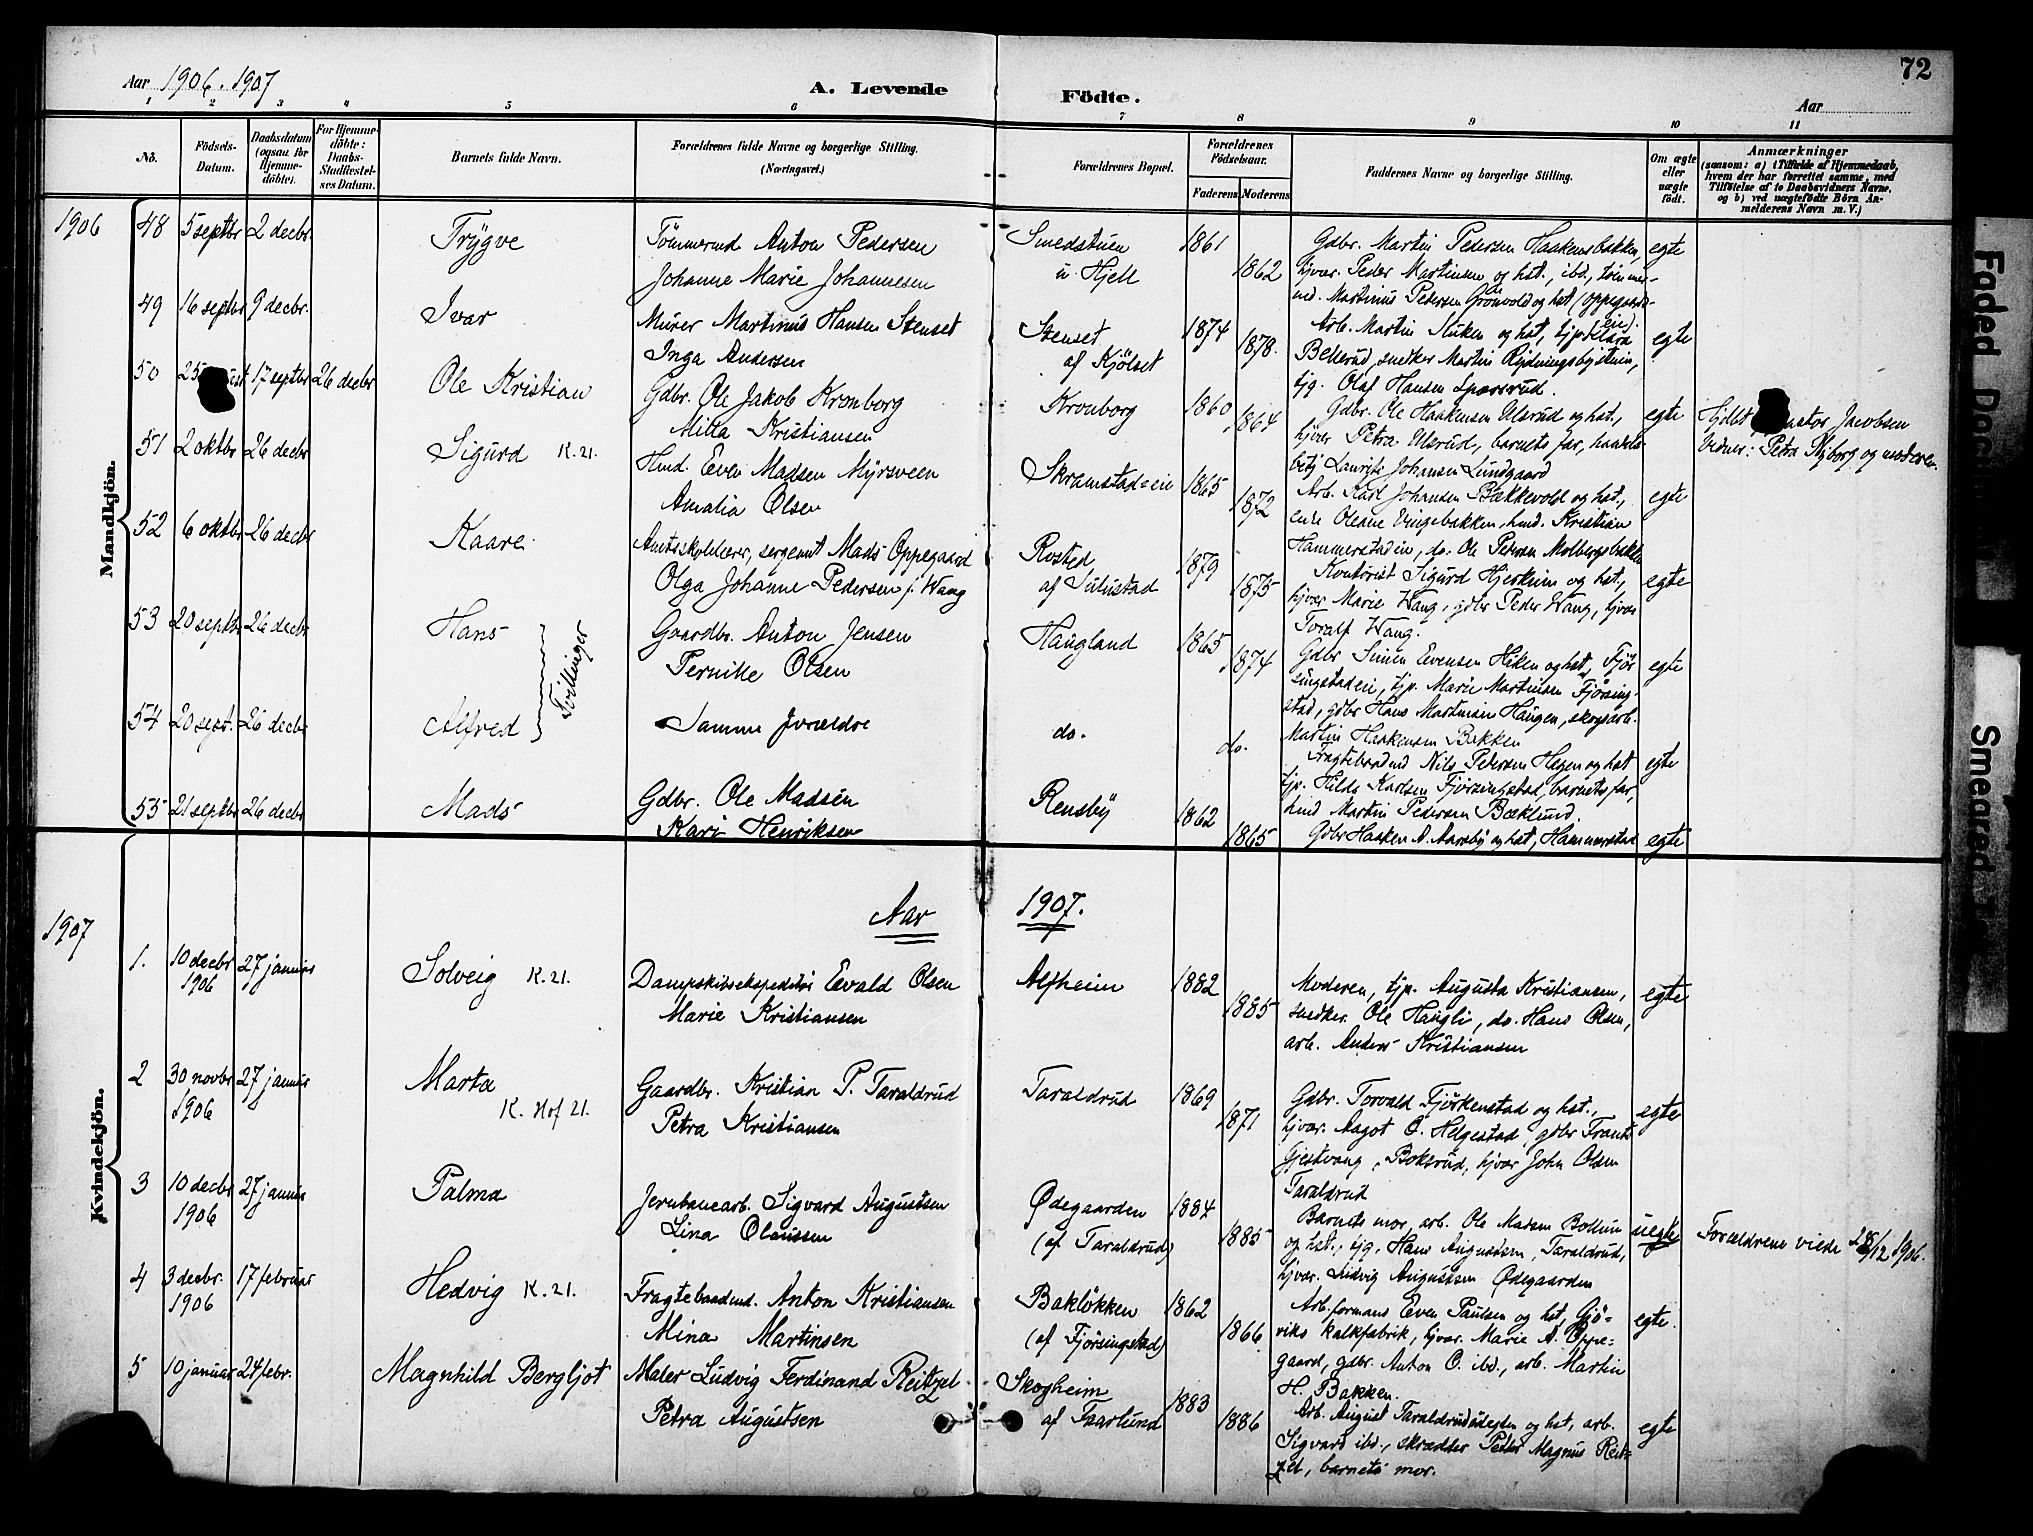 72
Aar 1906. 1907
A. Levende Födte.
Aar
1 2 3 4 5 6 7 8 9 10 11
No.
Födsels-Datum.
Daabsdatum (ogsaa for Hjemme-döbte).
For Hjemme-döbte: Daabs-Stadfæstel-ses Datum.
Barnets fulde Navn.
Forældrenes fulde Navne og borgerlige Stilling. (Næringsvei.)
Forældrenes Bopæl.
Forældrenes Födselsaar.
Faderens Moderens
Faddernes Navne og borgerlige Stilling.
Om ægte eller uægte født.
Anmærkninger
(saasom: a) i Tilfælde af Hjemmedaab,
hvem der har forrettet samme, med
Tilföielse af to Daabsvidners Navne.
og b) ved uægtefödte Börn An-
melderens Navn m. V.)
Mandkjön.
1906 48 5 septbr 2 decbr. Trygve
Tömmermd Anton Pedersen
Johanne Marie Johannesen
Smedstuen
u. Hjell
1861 1862
Gdbr. Martin Pedersen Haakensbakken,
hjvær. Peder Martinsen og hst., ibd., tömmer-
md. Martinus Pedersen Grönvold og hst (Oppegaards-
eie).
egte
49 16 septbr 9 decbr. Ivar
Murer Martinus Hansen Stenset
Inga Andersen
Stenset
af Kjölset
1874 1878.
Arb. Martin Sluken og hst, tjp Klara
Bekerud, snedker Martin Rydningsbystuin,
tjg. Olaf Hansen Sparsrud.
egte
50 25 17 septbr 26 decbr Ole Kristian
Gdbr. Ole Jakob Kronborg
Mina Kristiansen
Kronborg
1860 1864
Gdbr. Ole Haakensen Ulsrud og hst.,
hjvær Petra Ulsrud, barnets far, haandv-
Laurits Johansen Lundgaard
egte
Jacobsen
Vidner: Petra Nyborg og moderen.
51 2 oktbr 26 decbr Sigurd K. 21.
Hmd. Even Madsen Myrsveen
Amalia Olsen
Skramstadeie
1865 1872
Arb. Karl Johansen Bækkevold og hst.,
enke Oleane Vingebakken, hmd. Kristian
Hammerstadeie, do. Ole Pedersen Molbergsbakken
egte
52 6 oktbr 26 decbr Kaare
Amtsskolelærer, sergeant Mads Oppegaard
Olga Johanne Pedersen f. Wang
Rosted
af Sulustad
1879 1875
Kontorist Sigurd Hjerkinn og hst,
hjvær Marie Wang, gdbr Peder Wang, hjvær
Toralf Wang.
egte
53 20 septbr 26 decbr Hans
Tvillinger
Gaardbr. Anton Jensen
Pernille Olsen
Haugland
1865 1874
Gdbr Simen Evensen Hiken og hst, Fjör-
singstadeie, tjp. Marie Martinsen Fjörsing-
stad, gdbr Hans Martinsen Haugen, skogsarb.
Martin Haakensen Bakken
egte
54 20 sept. 26 decbr Alfred
Samme forældre
do.
do.
Fragtebaadmd Nils Pedersen Hagen og hst
tjp. Hilda Karlsen Fjörsingstad, barnets far,
hmd Martin Pedersen Bæklund.
egte
55 21 septbr 26 decbr Mads
Gdbr. Ole Madsen
Kari Henriksen
Rensby
1862 1865
Gdbr Haaken A. Aarsby og hst, Hammerstad
egte
Aar 1907.
Kvindekjön.
1907 1. 10 decbr 1906 27 januar Solveig K. 21.
Dampskibsekspeditör Evald Olsen
Marie Kristiansen
Alfheim
1882 1885
Moderen, tjp. Augusta Kristiansen,
snedker Ole Haugli, do. Hans Olsen,
arb. Anders Kristiansen
egte
2 30 novbr 1906 27 januar Marta
K. Hof 21.
Gaardbr. Kristian P. Taraldrud
Petra Kristiansen
Taraldrud
1869 1871
Gdbr. Torvald Fjörkenstad og hst.,
hjvær. Aagot O. Helgestad, gdbr Frants
Gjestvang, Boksrud, hjvær John Olsen
Taraldrud
egte
3 10 decbr 1906 27 januar Palma
Jernbanearb. Sigvard Augustsen
Lina Olaussen
Ødegaarden
(af Taraldrud)
1884 1885
Barnets mor, arb. Ole Madsen Bollum
og hst., tjg. Hans Augustsen, Taraldrud,
hjvær. Ludvig Augustsen Ødegaarden
uegte
Forældrene viede 28/12 1906.
4 3 decbr. 1906 17 februar Hedvig K. 21.
Fragtebaadmd. Anton Kristiansen
Mina Martinsen
Bakløkken
(af Fjörsingstad)
1862 1866
Arb. formand Even Paulsen og hst, Gjö-
viks kalkfabrik, hjvær. Marie A. Oppe-
gaard, gdbr. Anton O. ibd., arb. Martin
H. Bakken.
egte.
5 10 januar 24 febr. Magnhild Bergljot
Maler Ludvig Ferdinand Reitzel
Petra Augustsen
Skogheim
af Faarlund
1883 1886
Arb. August Taraldrudødegden og hst, arb.
Sigvard ibd., skrædder Peder Magnus Reit-
zel, barnets mor.
egte
Faded Doc
Smeared